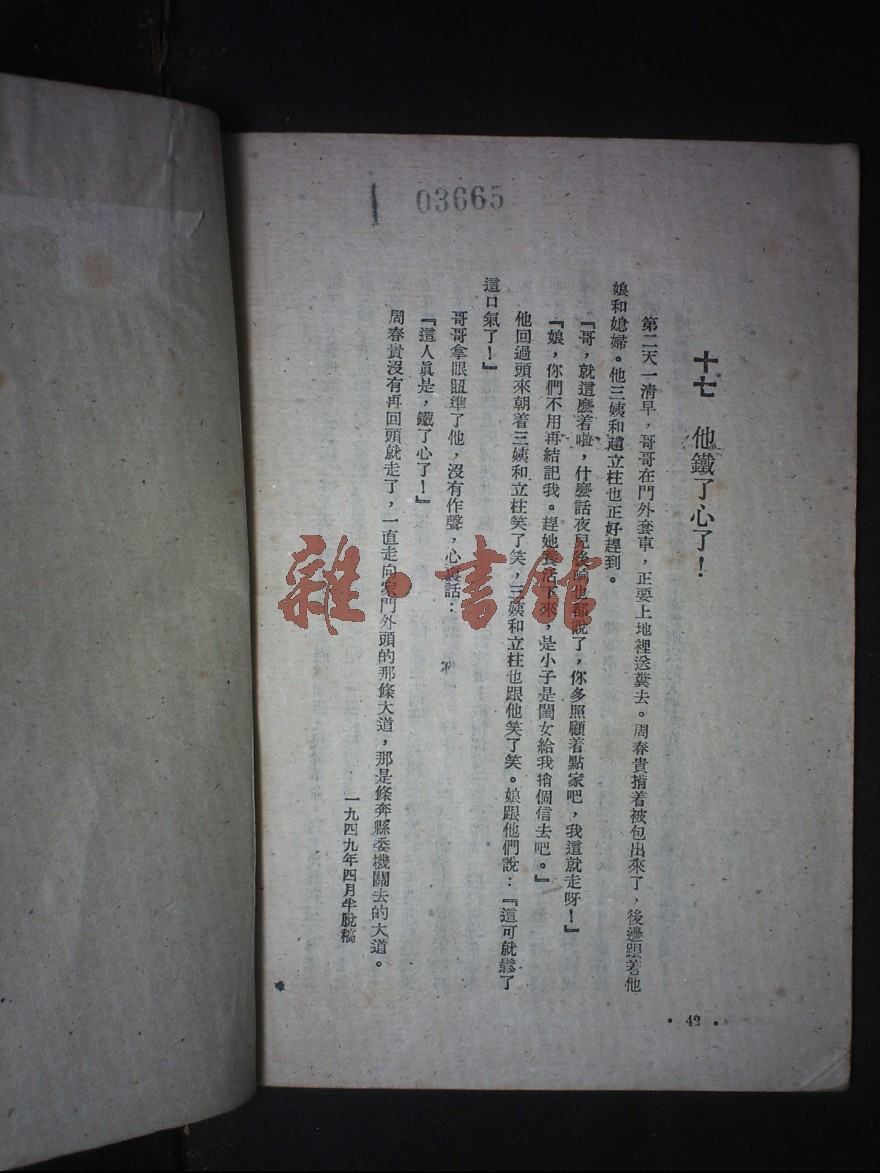 03665
十七　他鐵了心了！
第二天一淸早，哥哥在門外套車，正要上地裡送糞去。周春貴揹着被包出來了，後邊跟著他
娘和媳婦。他三姨和趙立柱也正好趕到。
『哥，就這麼着啦，什麼話夜兒後晌也都說了，你多照顧着點家吧，我這就走呀！』
『娘，你們不用再結記我。趕她養活下來，是小子是閨女給我捎個信去吧。』
他回過頭來朝着三姨和立柱笑了笑，三姨和立柱也跟他笑了笑。娘跟他們說：『這可就鬆了
這口氣了！』
哥哥拿眼瞄準了他，沒有作聲，心裏話：
『這人眞是，鐵了心了！』
周春貴沒有再回頭就走了，一直走向家門外頭的那條大道，那是條奔縣委機關去的大道。
一九四九年四月半脫稿
• 42 •
雜·書館